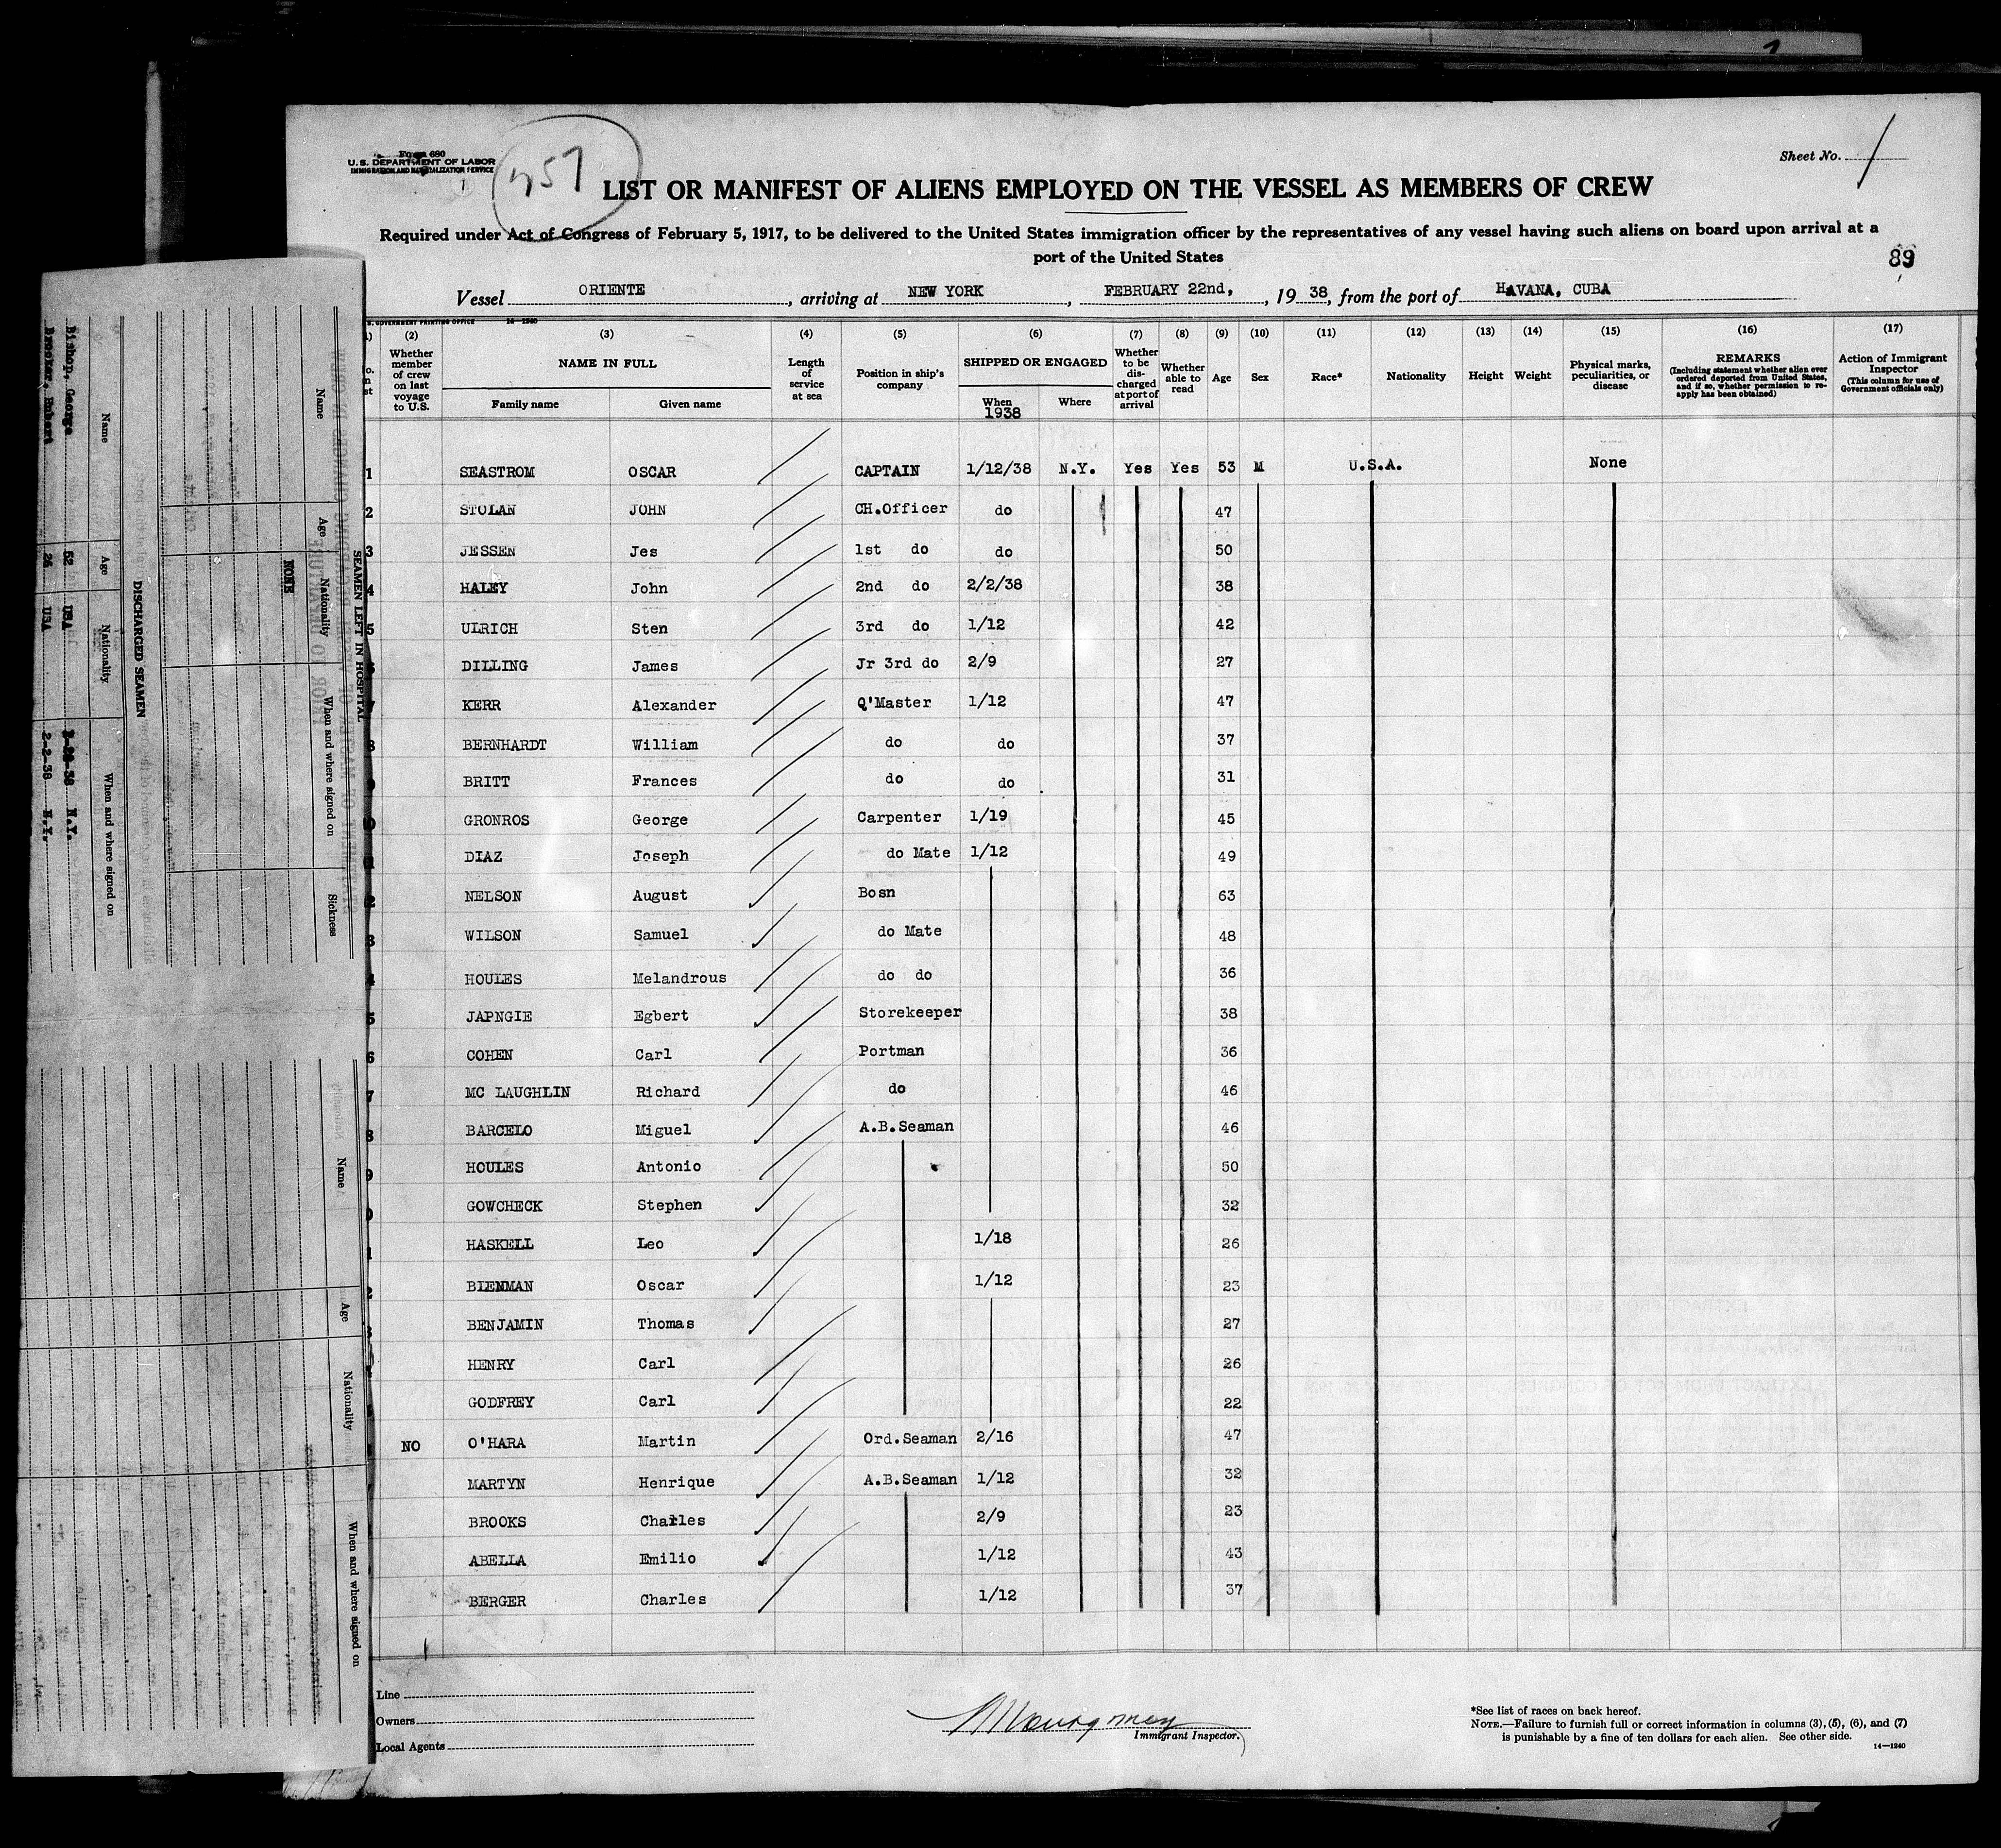 Form 680
U. S. DEPARTMENT OF LABOR
IMMIGRATION AND NATURALIZATION SERVICE
Sheet No. 1
LIST OR MANIFEST OF ALIENS EMPLOYED ON THE VESSEL AS MEMBERS OF CREW
Required under Act of Congress of February 5, 1917, to be delivered to the United States immigration officer by the representatives of any vessel having such aliens on board upon arrival at a
port of the United States
89
Vessel ORIENTE, arriving at NEW YORK, FEBRUARY 22nd, 19 38, from the port of HAVANA, CUBA
GOVERNMENT PRINTING OFFICE 14—1240
(2) (3) (4) (5) (6) (7) (8) (9) (10) (11) (12) (13) (14) (15) (16) (17)
Whether member of crew on last voyage to U.S.
NAME IN FULL
Family name Given name
Length of service at sea
Position in ship's company
SHIPPED OR ENGAGED
When Where
1938
Whether to be discharged at port of arrival
Whether able to read
Age
Sex
Race*
Nationality
Height
Weight
Physical marks, peculiarities, or disease
REMARKS
(Including statement whether alien ever ordered deported from United States, and if so, whether permission to reapply has been obtained)
Action of Immigrant Inspector
(This column for use of Government officials only)
1 SEASTROM OSCAR CAPTAIN 1/12/38 N.Y. Yes Yes 53 M U.S.A. None
2 STOLAN JOHN CH.Officer do 47
3 JESSEN Jes 1st do do 50
4 HALEY John 2nd do 2/2/38 38
5 ULRICH Sten 3rd do 1/12 42
6 DILLING James Jr 3rd do 2/9 27
7 KERR Alexander Q'Master 1/12 47
8 BERNHARDT William do do 37
9 BRITT Frances do do 31
0 GRONROS George Carpenter 1/19 45
1 DIAZ Joseph do Mate 1/12 49
2 NELSON August Bosn 63
3 WILSON Samuel do Mate 48
4 HOULES Melandrous do do 36
5 JAPNGIE Egbert Storekeeper 38
6 COHEN Carl Portman 36
7 MC LAUGHLIN Richard do 46
8 BARCELO Miguel A.B.Seaman 46
9 HOULES Antonio 50
0 GOWCHECK Stephen 32
1 HASKELL Leo 1/18 26
2 BIENMAN Oscar 1/12 23
BENJAMIN Thomas 27
HENRY Carl 26
GODFREY Carl 22
NO O'HARA Martin Ord.Seaman 2/16 47
MARTYN Henrique A.B.Seaman 1/12 32
BROOKS Charles 2/9 23
ABELLA Emilio 1/12 43
BERGER Charles 1/12 37
Line
Owners
Local Agents
Immigrant Inspector.
*See list of races on back hereof.
NOTE.—Failure to furnish full or correct information in columns (3), (5), (6), and (7)
is punishable by a fine of ten dollars for each alien. See other side.
14—1240
SEAMEN LEFT IN HOSPITAL
Name Age Nationality When and where signed on Sickness
NONE
DISCHARGED SEAMEN
Name Age Nationality When and where signed on
Bishop, George 52 USA N.Y.
Brooker, Hubert USA 2-2-38 N.Y.
Name Age Nationality When and where signed on